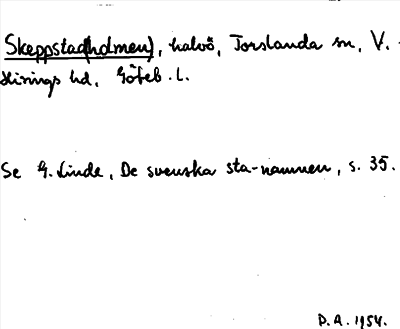 Skeppstad(holmen), halvö, Torslanda sn, V.
Hisings hd, Göteb. l.
Se G. Linde, De svenska sta-namnen, s. 35.
D.A. 1954.